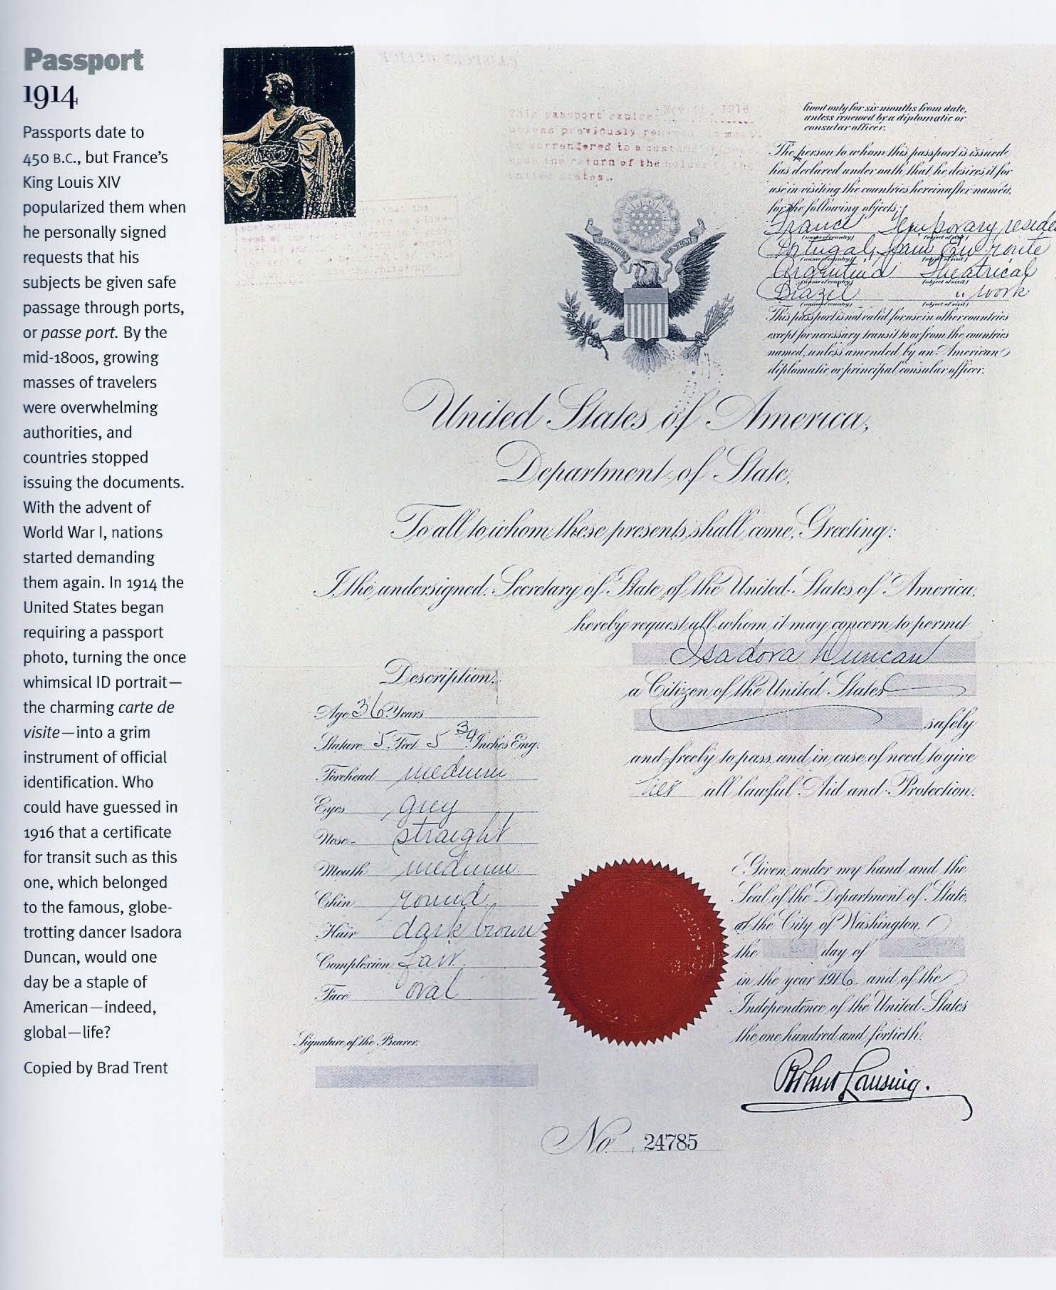 Passport
1914
Passports date to
450 B.C., but France's
King Louis XIV
popularized them when
he personally signed
requests that his
subjects be given safe
passage through ports,
or passe port. By the
mid-1800s, growing
masses of travelers
were overwhelming
authorities, and
countries stopped
issuing the documents.
With the advent of
World War I, nations
started demanding
them again. In 1914 the
United States began
requiring a passport
photo, turning the once
whimsical ID portrait—
the charming carte de
visite—into a grim
instrument of official
identification. Who
could have guessed in
1916 that a certificate
for transit such as this
one, which belonged
to the famous, globe-
trotting dancer Isadora
Duncan, would one
day be a staple of
American—indeed,
global—life?
Copied by Brad Trent
This passport expires 1916
unless previously
be surrendered to a
the return of the
United States.
Good only for six months from date,
unless renewed by a diplomatic or
consular officer.
The person to whom this passport is issued
has declared under oath that he desires it for
use in visiting the countries hereinafter named,
for the following objects:
France Temporary reside
Portugal, Spain En route
Argentina Theatrical
Brazil " work
This passport is not valid for use in other countries
except for necessary transit to or from the countries
named, unless amended by an American
diplomatic or principal consular officer.
United States of America,
Department of State,
To all to whom these presents shall come, Greeting:
I the undersigned, Secretary of State of the United States of America,
hereby request all whom it may concern to permit
Isadora Duncan
a Citizen of the United States
safely
and freely to pass, and in case of need to give
her all lawful Aid and Protection.
Description,
Age 36 Years
Stature 5 Feet 5 3/4 Inches Eng.
Forehead medium
Eyes grey
Nose straight
Mouth medium
Chin round
Hair dark brown
Complexion Fair
Face oval
Signature of the Bearer.
Given under my hand and the
Seal of the Department of State,
at the City of Washington
the day of
in the year 1916 and of the
Independence of the United States
the one hundred and fortieth.
Robert Lansing.
No. 24785